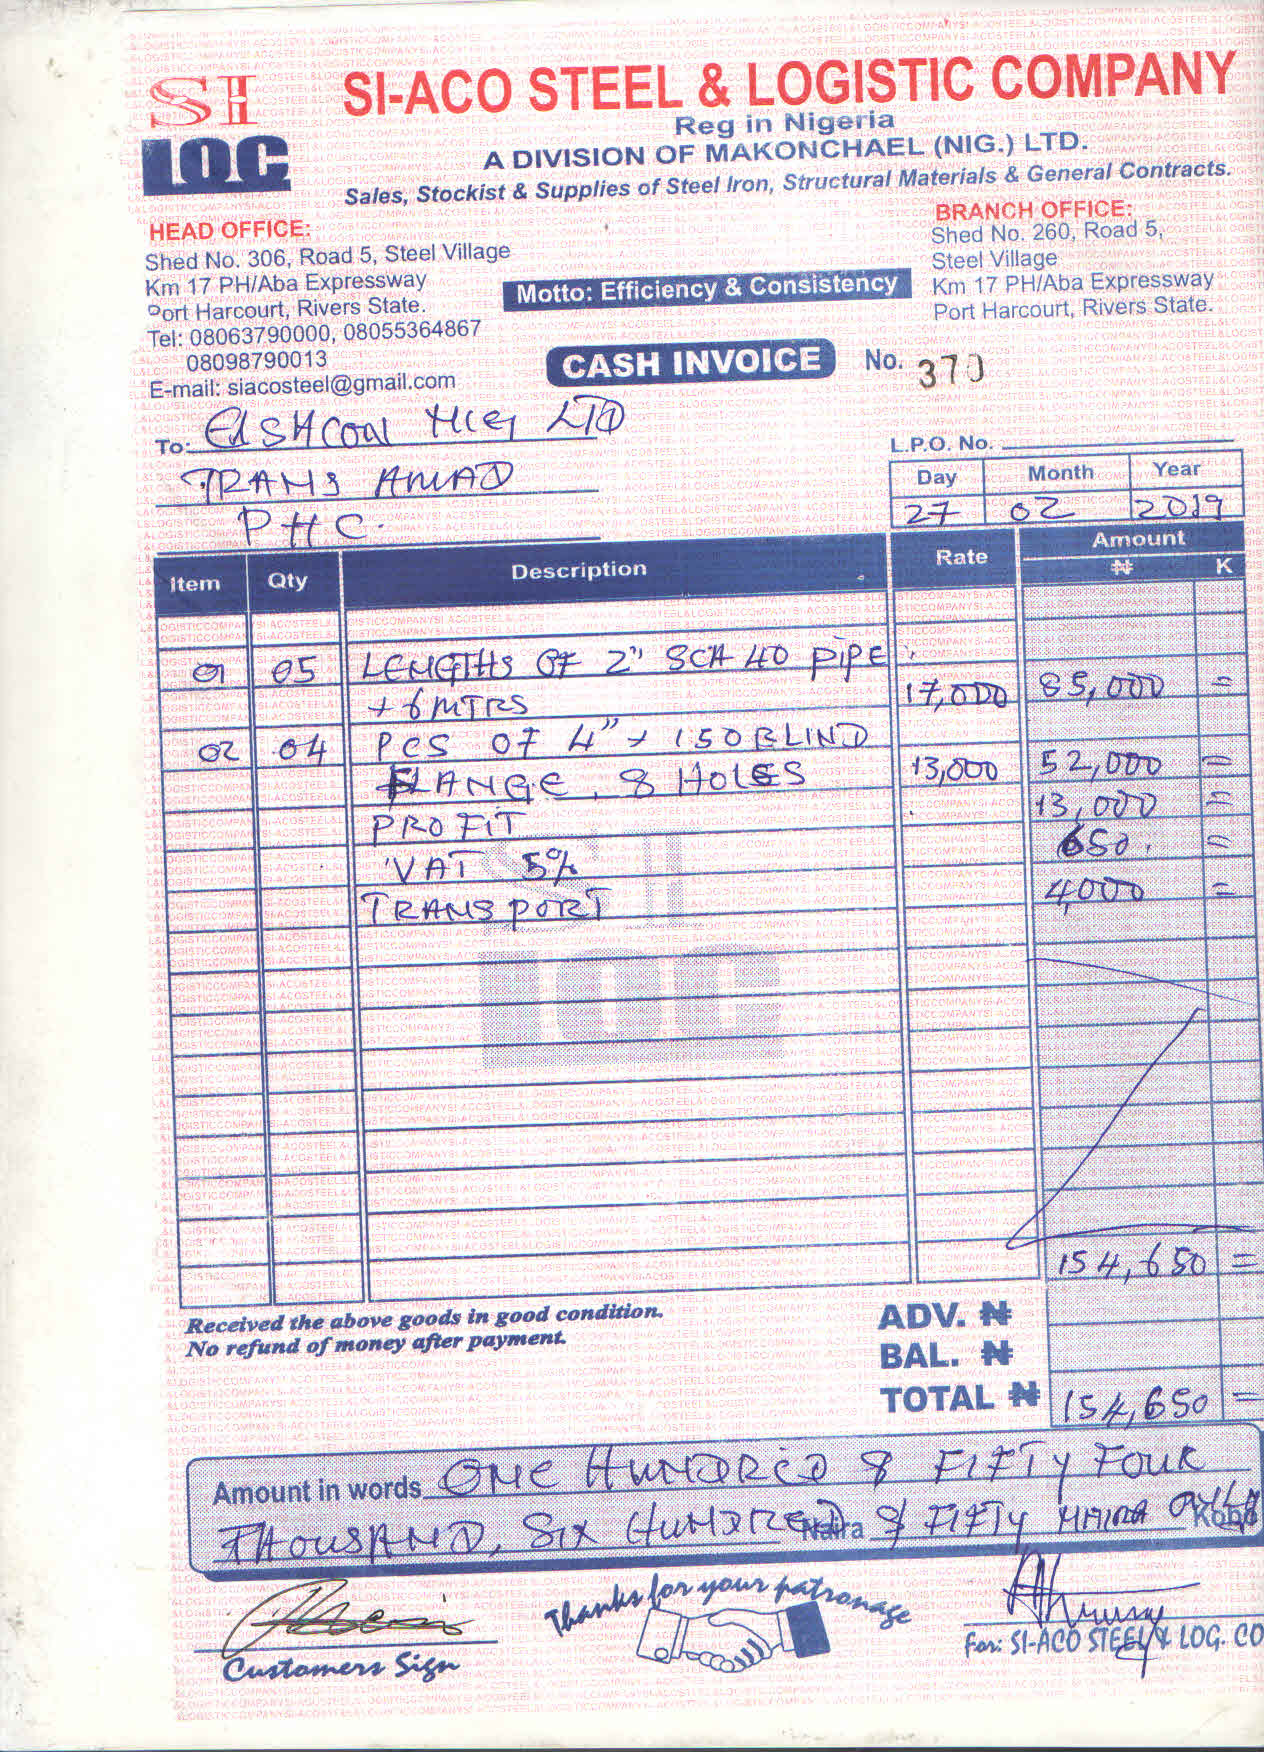 SI LOC
SI-ACO STEEL & LOGISTIC COMPANY
Reg in Nigeria
A DIVISION OF MAKONCHAEL (NIG.) LTD.
Sales, Stockist & Supplies of Steel Iron, Structural Materials & General Contracts.
HEAD OFFICE:
Shed No. 306, Road 5, Steel Village
Km 17 PH/Aba Expressway
Port Harcourt, Rivers State.
Tel: 08063790000, 08055364867
08098790013
E-mail: siacosteel@gmail.com
Motto: Efficiency & Consistency
BRANCH OFFICE:
Shed No. 260, Road 5,
Steel Village
Km 17 PH/Aba Expressway
Port Harcourt, Rivers State.
CASH INVOICE No. 370
To: NIG LTD
TRANS AMAD
PHC.
L.P.O. No.
Day Month Year
27 02 2019
Item Qty Description Rate Amount
₦ K
01 05 LENGTHS OF 2" SCH 40 PIPE
+ 6MTRS 17,000 85,000 =
02 04 PCS OF 4" + 150 BLIND
FLANGE, 8 HOLES 13,000 52,000 =
PROFIT 13,000 =
VAT 5% 650. =
TRANSPORT 4,000 =
154,650 =
Received the above goods in good condition.
No refund of money after payment.
ADV. ₦
BAL. ₦
TOTAL ₦ 154,650 =
Amount in words ONE HUNDRED & FIFTY FOUR
THOUSAND, SIX HUNDRED Naira & FIFTY NAIRA ONLY Kobo
Customers Sign
Thanks for your patronage
For: SI-ACO STEEL & LOG. CO